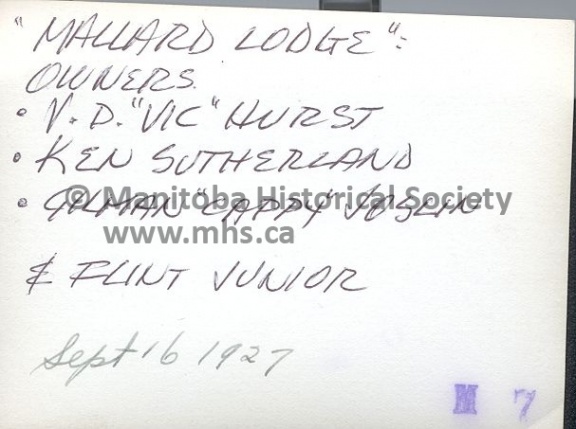 "MALLARD LODGE":
OWNERS.
• V. D. "VIC" HURST
• KEN SUTHERLAND
• "CAPPY" JOSLIN
© Manitoba Historical Society
www.mhs.ca
& FLINT JUNIOR
Sept 16 1927
M 7